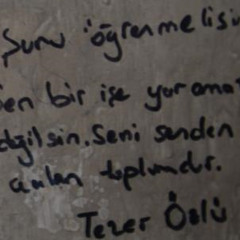 Şunu öğrenmelisin
sen bir işe yaramaz
değilsin. Seni senden
çalan toplumdur.
Tezer Özlü